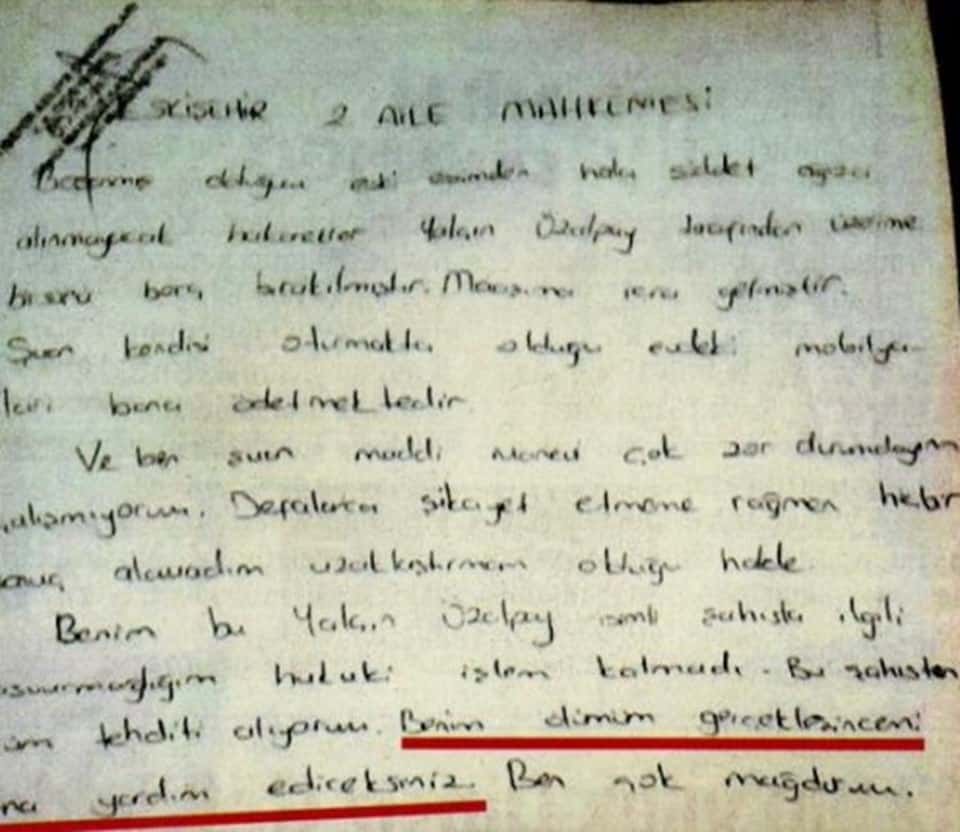 ESKİŞEHİR 2 AİLE MAHKEMESİ
olduğum eski eşimden hala şiddet ağıza
alınmayacak hakaretler Yalçın Özalpay tarafından üzerime
bi sürü borç bırakılmıştır. Maaşıma icra gelmiştir.
Şuan kendisi oturmakta olduğu evdeki mobilya
ları bana ödetmektedir.
Ve ben şuan maddi manevi çok zor durumdayım
çalışmıyorum. Defalarca şikayet etmeme rağmen hiçbir
sonuç alamadım uzaklaştırmam olduğu halde.
Benim bu Yalçın Özalpay isimli şahısla ilgili
hukuki işlem kalmadı. Bu şahıstan
tehditi alıyorum. Benim ölümüm gerçekleşincemi
yardım ediceksiniz. Ben çok mağdurum.